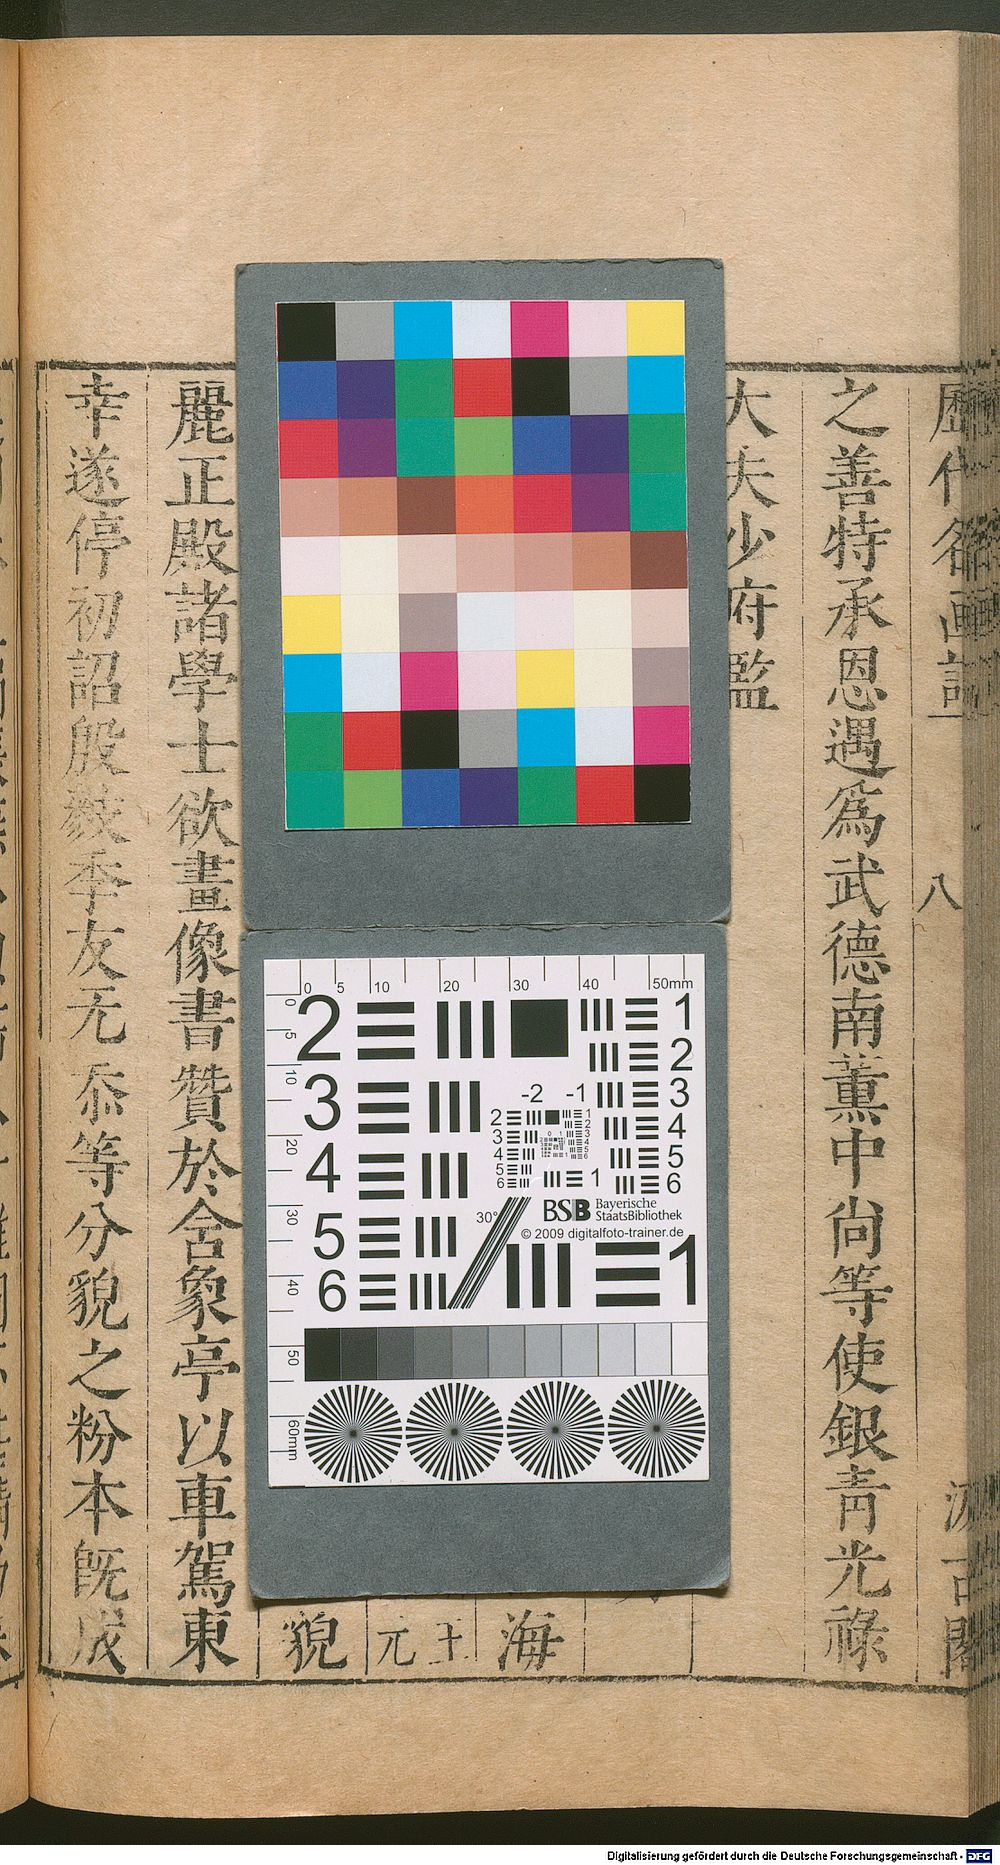 歷代名画記
八
汲古閣
之善特承恩遇爲武德南薰中尚等使銀青光祿
大夫少府監
海
元
貌
麗正殿諸學士欲畫像書贊於含象亭以車駕東
幸遂停初詔殷
季友无忝等分貌之粉本旣成
0 5 10 20 30 40 50mm
0 5 10 20 30 40 50 60mm
2
3
4
5
6
1
2
3
4
5
6
-2 -1
2
3
4
5
6
1
30°
BSB Bayerische
StaatsBibliothek
© 2009 digitalfoto-trainer.de
1
Digitalisierung gefördert durch die Deutsche Forschungsgemeinschaft - DFG